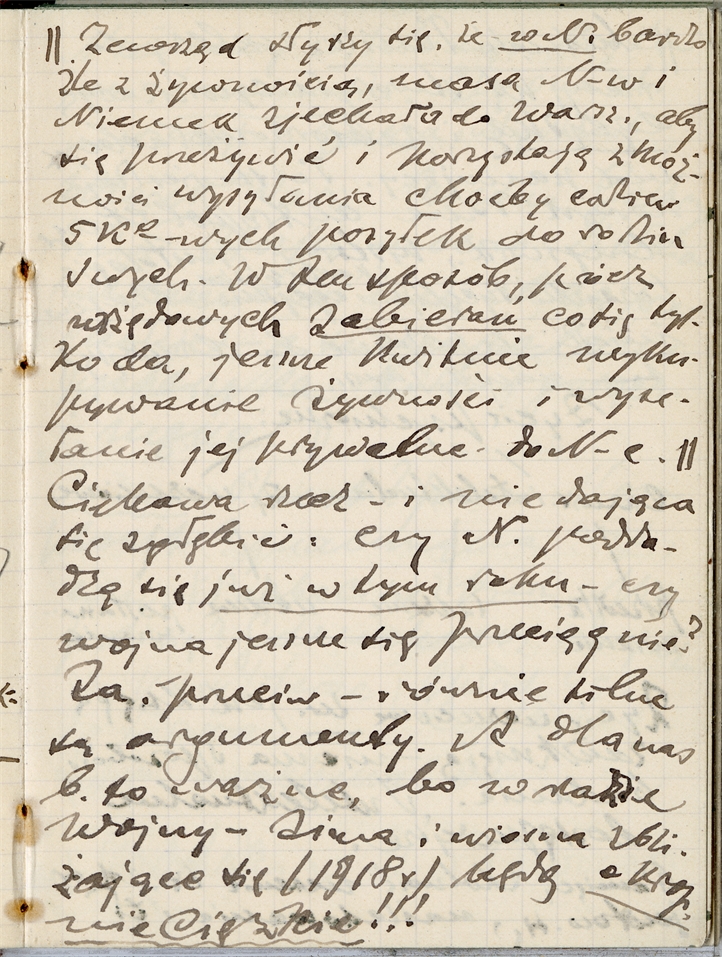 || Zewsząd słyszy się, że w N. bardzo
źle z żywnością, masa N-w i
Niemek zjechała do Warsz., aby
się przeżywić i korzystają z moż-
ności wysyłania choćby codzien
5 Kº-wych posyłek do rodzin
swych. W ten sposób, prócz
urzędowych zabierań co się tyl-
ko da, jeszcze kwitnie wyku-
pywanie żywności i wysy-
łanie jej prywatne do N-c. ||
Ciekawa rzecz - i nie dająca
się zgłębić: czy N. podda-
dzą się już w tym roku - czy
wojna jeszcze się przeciągnie?
Za i przeciw - równie silne
są argumenty. A dla nas
b. to ważne, bo w razie
wojny - zima i wiosna zbli-
żające się /1918 r/ będą okrop-
nie ciężkie!!!